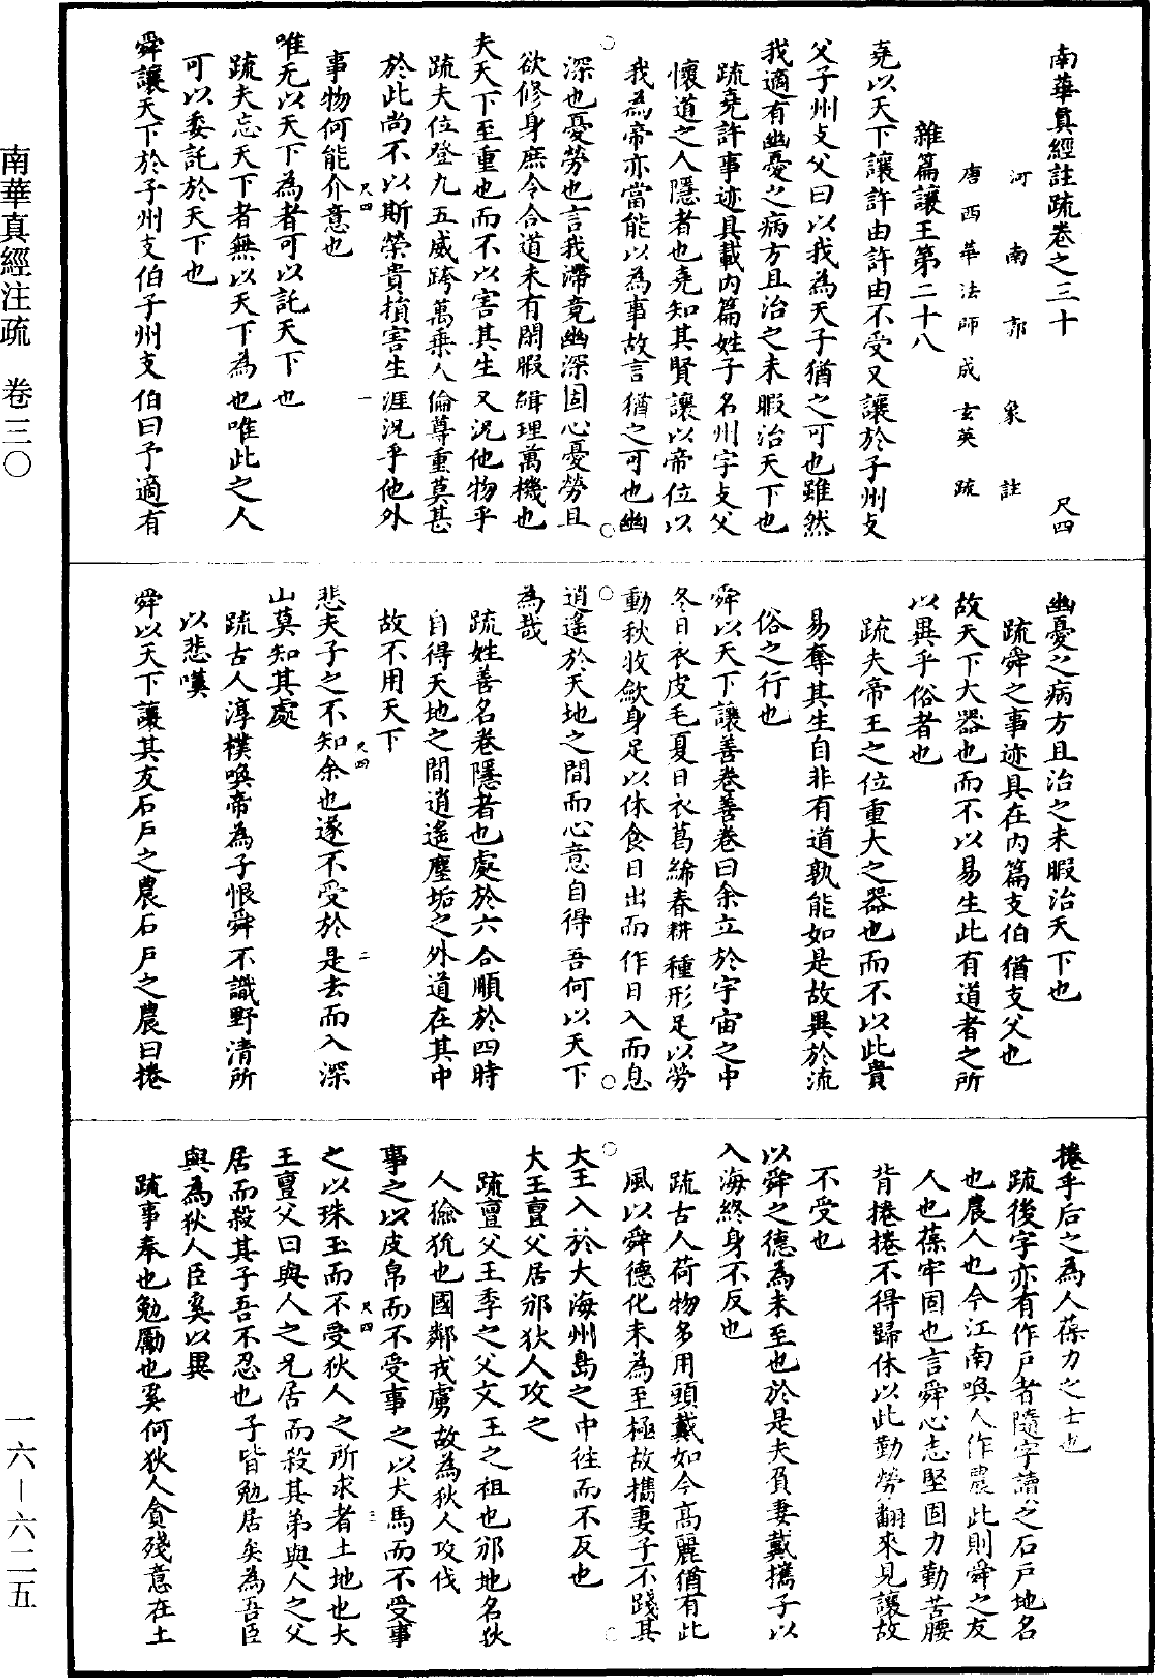 南華真經註疏卷之三十　尺四
河南郭象註
唐西華法師成玄英疏
雜篇讓王第二十八
堯以天下讓許由許由不受又讓於子州支
父子州支父曰以我為天子猶之可也雖然
我適有幽憂之病方且治之未暇治天下也
疏堯許事迹具載內篇姓子名州字支父
懷道之人隱者也堯知其賢讓以帝位以
我為帝亦當能以為事故言猶之可也幽
深也憂勞也言我滯竟幽深固心憂勞且
欲修身庶令合道未有閑暇緝理萬機也
夫天下至重也而不以害其生又況他物乎
疏夫位登九五威跨萬乘人倫尊重莫甚
於此尚不以斯榮貴損害生涯況乎他外
尺四　一
事物何能介意也
唯无以天下為者可以託天下也
疏夫忘天下者無以天下為也唯此之人
可以委託於天下也
舜讓天下於子州支伯子州支伯曰予適有
幽憂之病方且治之未暇治天下也
疏舜之事迹具在內篇支伯猶支父也
故天下大器也而不以易生此有道者之所
以異乎俗者也
疏夫帝王之位重大之器也而不以此貴
易奪其生自非有道孰能如是故異於流
俗之行也
舜以天下讓善卷善卷曰余立於宇宙之中
冬日衣皮毛夏日衣葛絺春耕種形足以勞
動秋收斂身足以休食日出而作日入而息
逍遙於天地之間而心意自得吾何以天下
為哉
疏姓善名卷隱者也處於六合順於四時
自得天地之間逍遙塵垢之外道在其中
故不用天下
尺四　二
悲夫子之不知余也遂不受於是去而入深
山莫知其處
疏古人淳樸喚帝為子恨舜不識野清所
以悲嘆
舜以天下讓其友石戶之農石戶之農曰捲
捲乎后之為人葆力之士也
疏後字亦有作戶者隨字讀之石戶地名
也農人也今江南喚人作農此則舜之友
人也葆牢固也言舜心志堅固力勤苦腰
背捲捲不得歸休以此勤勞翻來見讓故
不受也
以舜之德為未至也於是夫負妻戴攜子以
入海終身不反也
疏古人荷物多用頭戴如今高麗猶有此
風以舜德化未為至極故攜妻子不踐其
大王入於大海州島之中往而不反也
大王亶父居邠狄人攻之
疏亶父王季之父文王之祖也邠地名狄
人獫狁也國鄰戎虜故為狄人攻伐
事之以皮帛而不受事之以犬馬而不受事
尺四　三
之以珠玉而不受狄人之所求者土地也大
王亶父曰與人之兄居而殺其弟與人之父
居而殺其子吾不忍也子皆勉居矣為吾臣
與為狄人臣奚以異
疏事奉也勉勵也奚何狄人貪殘意在土
南華真經注疏　卷三〇
一六—六二五